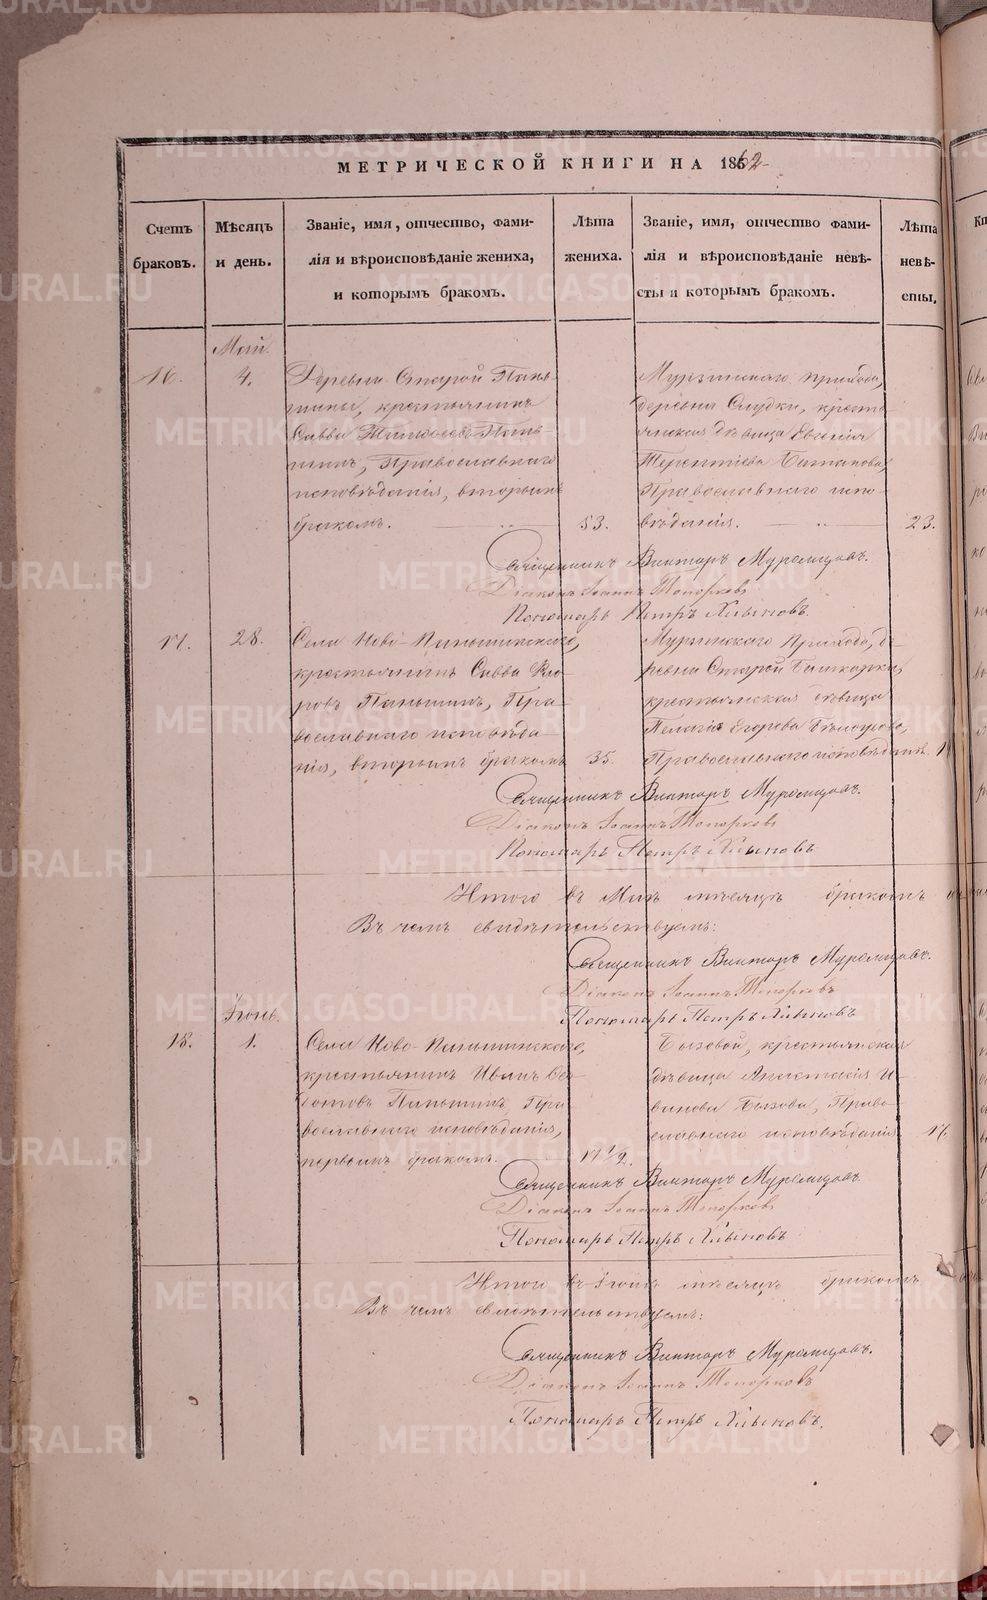 МЕТРИЧЕСКОЙ КНИГИ НА 1862
Счетъ браковъ.
Мѣсяцъ и день.
Званіе, имя, отчество, фами-
лія и вѣроисповѣданіе жениха,
и которымъ бракомъ.
Лѣта
жениха.
Званіе, имя, отчество фами-
лія и вѣроисповѣданіе невѣ-
сты и которымъ бракомъ.
Лѣта
невѣ-
сты.
Май.
16.
4.
Деревни Старой Пань-
шины, крестьянинъ
Савва Пань-
шинъ, Православнаго
исповѣданія, вторымъ
бракомъ.
53.
Мурзинскаго прихода,
деревни Слудки, кресть
янская дѣвица Евгенія
Терентіева
Православнаго испо-
вѣданія.
23.
Священникъ Викторъ Муромцовъ.
Діаконъ Іоаннъ Топорковъ
Пономарь Петръ Хлыновъ.
17.
28.
Села Ново-Паньшинскаго,
крестьянинъ Савва
Паньшинъ, Пра-
вославнаго исповѣда
нія, вторымъ бракомъ
35.
Мурзинскаго Прихода, де-
ревни Старой Башкарки,
крестьянская дѣвица
Пелагія Егорова Бѣлоусова,
Православнаго исповѣданія
Священникъ Викторъ Муромцовъ.
Діаконъ Іоаннъ Топорковъ
Пономарь Петръ Хлыновъ
Итого въ Маѣ мѣсяцѣ браковъ
Въ чемъ свидѣтельствуемъ:
Священникъ Викторъ Муромцовъ.
Діаконъ Іоаннъ Топорковъ
Пономарь Петръ Хлыновъ
Іюнь.
18.
1.
Села Ново-Паньшинскаго,
крестьянинъ Иванъ Ѳе-
дотовъ Паньшинъ, Пра-
вославнаго исповѣданія,
первымъ бракомъ.
17 1/2.
Бызовой, крестьянская
дѣвица Анастасія И-
ванова Бызова, Право-
славнаго исповѣданія
17.
Священникъ Викторъ Муромцовъ.
Діаконъ Іоаннъ Топорковъ
Пономарь Петръ Хлыновъ
Итого въ Іюнѣ мѣсяцѣ браковъ
Въ чемъ свидѣтельствуемъ:
Священникъ Викторъ Муромцовъ.
Діаконъ Іоаннъ Топорковъ
Пономарь Петръ Хлыновъ.
METRIKI.GASO-URAL.RU